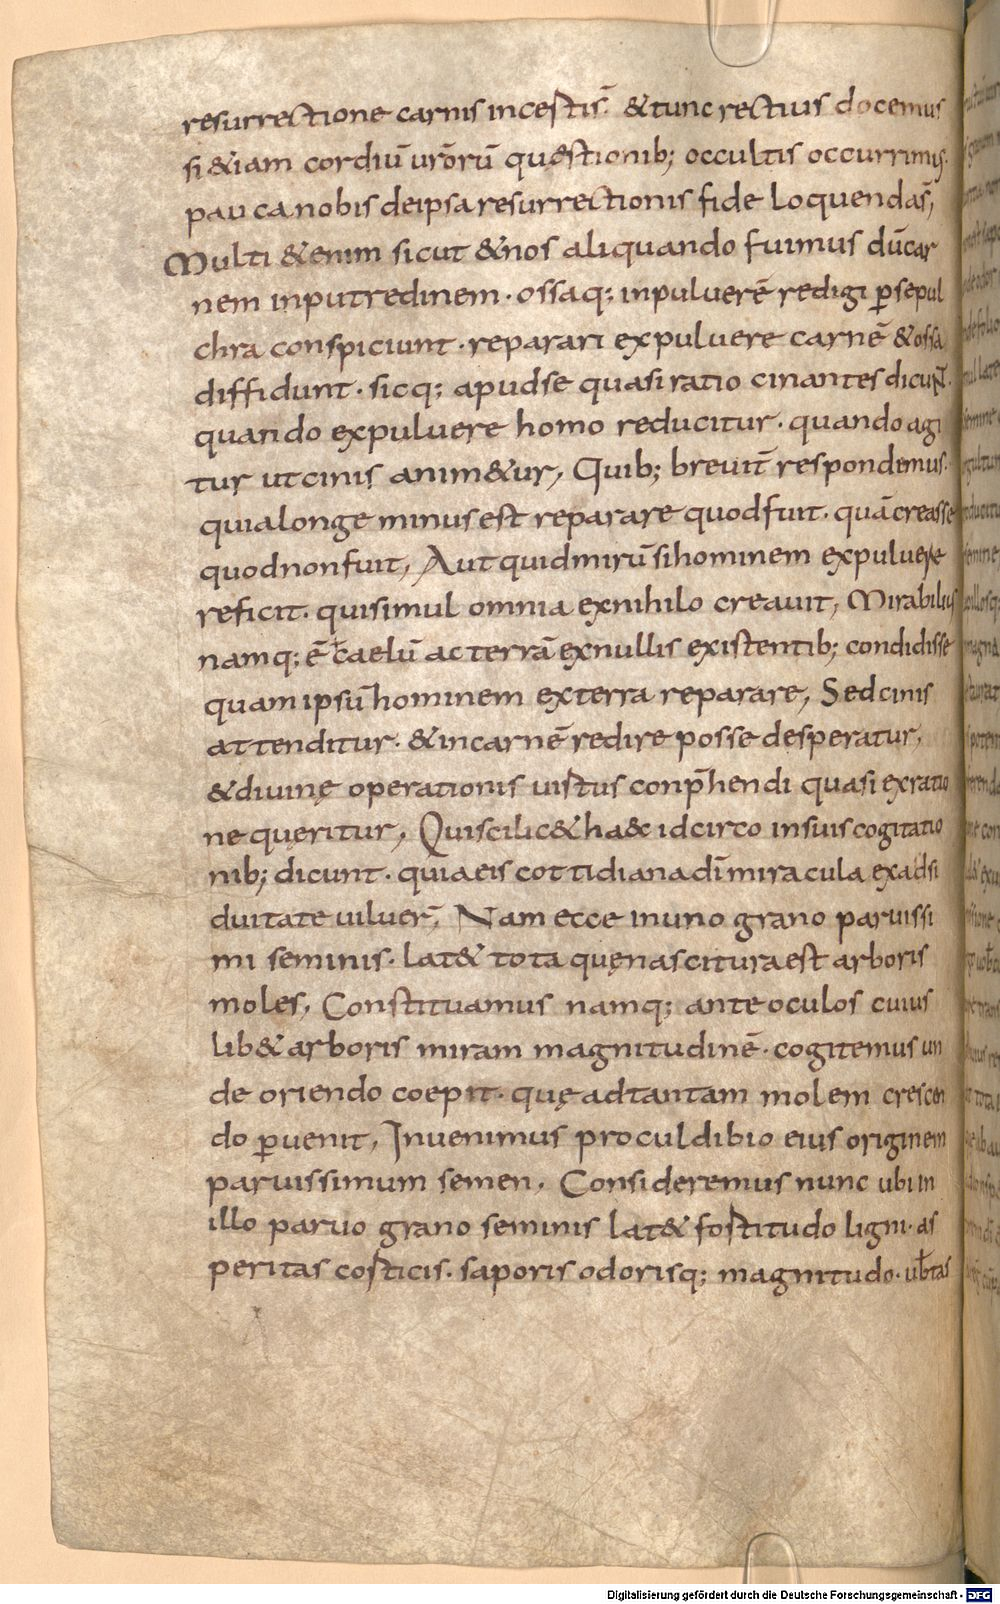 resurrectione carnis incestis̄. & tunc rectius docemus
si & iam cordiū urōrū quęstionib; occultis occurrimus.
pauca nobis deipsa resurrectionis fide loquenda s̄,
Multi &enim sicut & nos aliquando fuimus dū car
nem inputredinem. ossaq; inpuluerē redigi ꝑsepul
chra conspiciunt. reparari expuluere carnē & ossa
diffidunt. sicq; apudse quasi ratiocinantes dicuɴᴛ.
quando expuluere homo reducitur. quando agi
tur ut cinis anim&ur, Quib; breuit̄ respondemus.
quia longe minus est reparare quod fuit. quā creasse
quod non fuit, Aut quid mirū si hominem expuluere
reficit. qui simul omnia exnihilo creauit, Mirabilius
namq; ē caelū ac terrā exnullis existentib; condidisse
quam ipsū hominem exterra reparare, Sed cinis
attenditur. & incarnē redire posse desperatur,
& diuinę operationis uistus conp̄hendi quasi exratio
ne quęritur, Qui scilic& ha&c idcirco insuis cogitatio
nib; dicunt. quia eis cottidiana dī miracula exadsi
duitate uiluer̄, Nam ecce inuno grano paruissi
mi seminis. lat& tota quę nascitura est arboris
moles, Constituamus namq; ante oculos cuius
lib& arboris miram magnitudinē. cogitemus un
de oriendo coepit. quę adtantam molem crescen
do ꝑuenit, Inuenimus procul dibio eius originem
paruissimum semen, Consideremus nunc ubi in
illo paruo grano seminis lat& fostitudo ligni. as
peritas costicis. saporis odorisq; magnitudo. ub̄tas
Digitalisierung gefördert durch die Deutsche Forschungsgemeinschaft - DFG